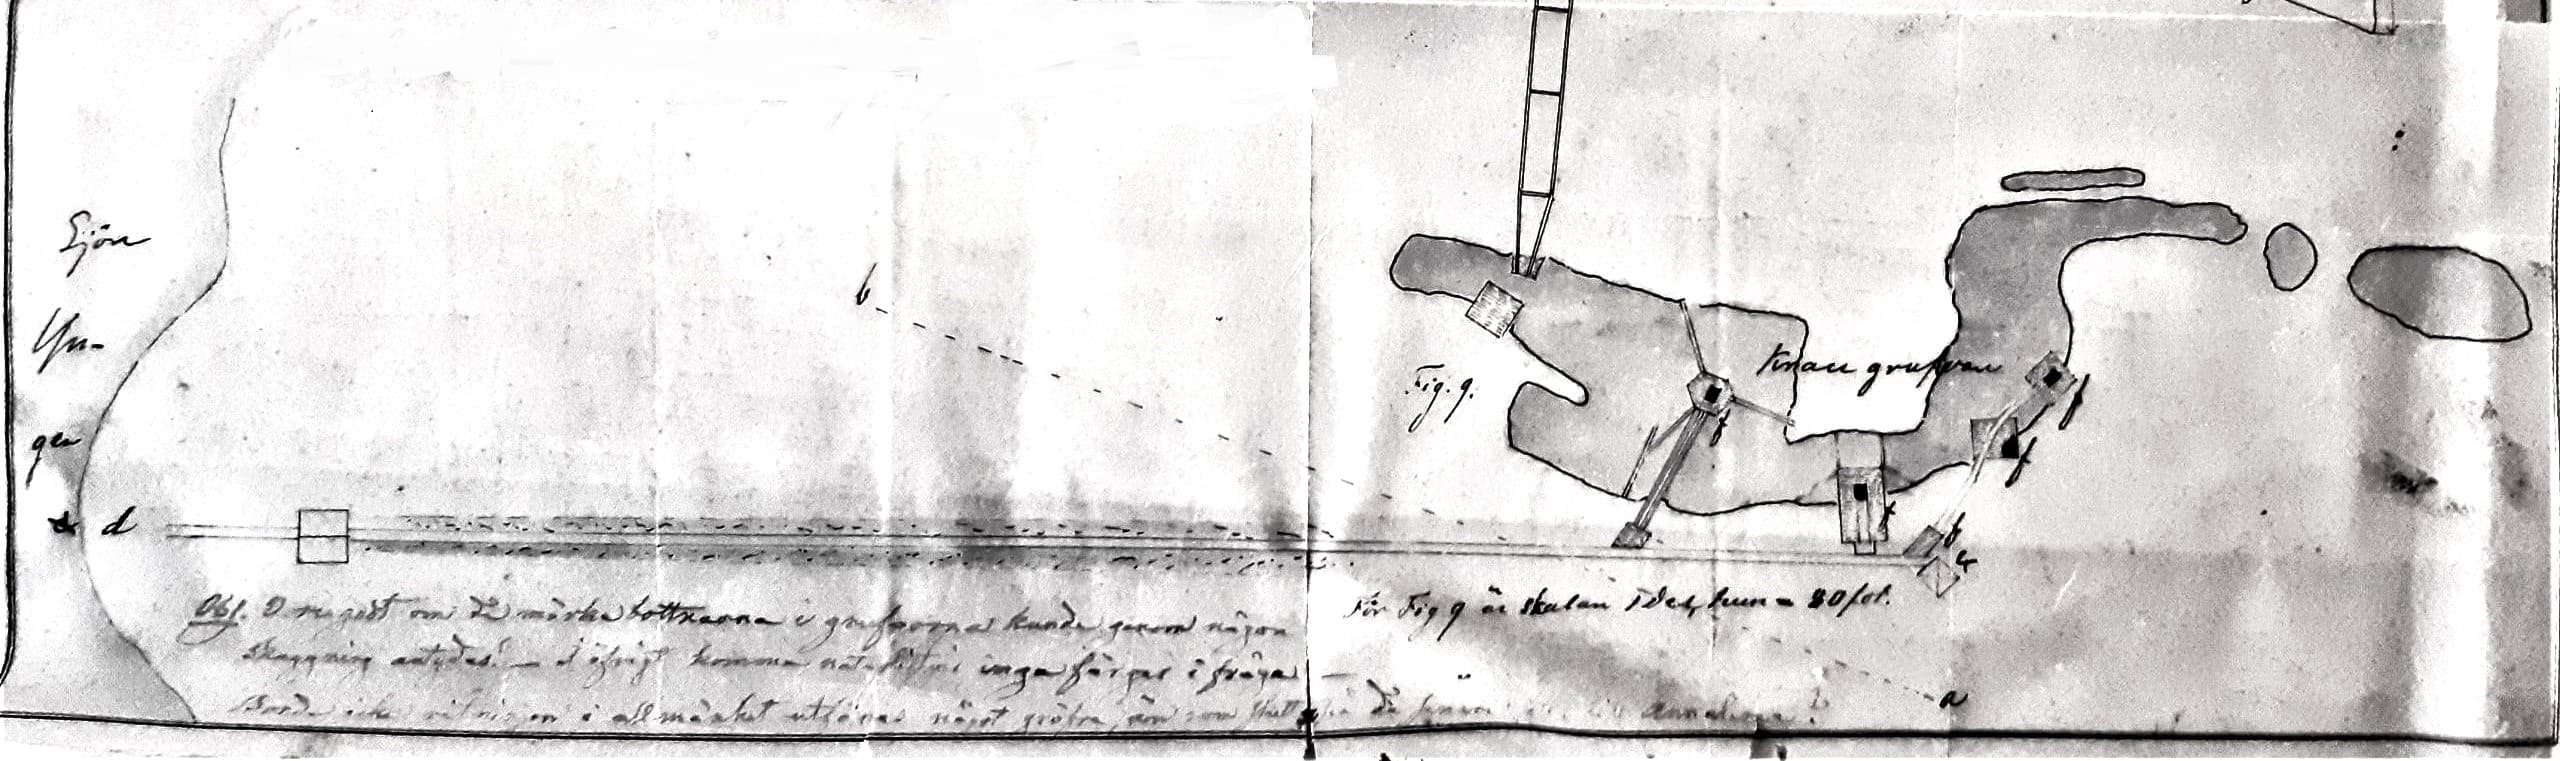 Sjön
Yn-
gen
b
Fig. 9.
Knaugrufvan
f
f
f
f
b
c
d
För Fig 9 är skalan 1 Dec. tum = 80 fot.
Obs. om de mörka bottnarna i grufvorna kunde genom någon
skuggning antydas? – I öfrigt komma naturligtvis inga färger i fråga
Borde icke ritningen i allmänhet utföras något gröfre än som skett
a